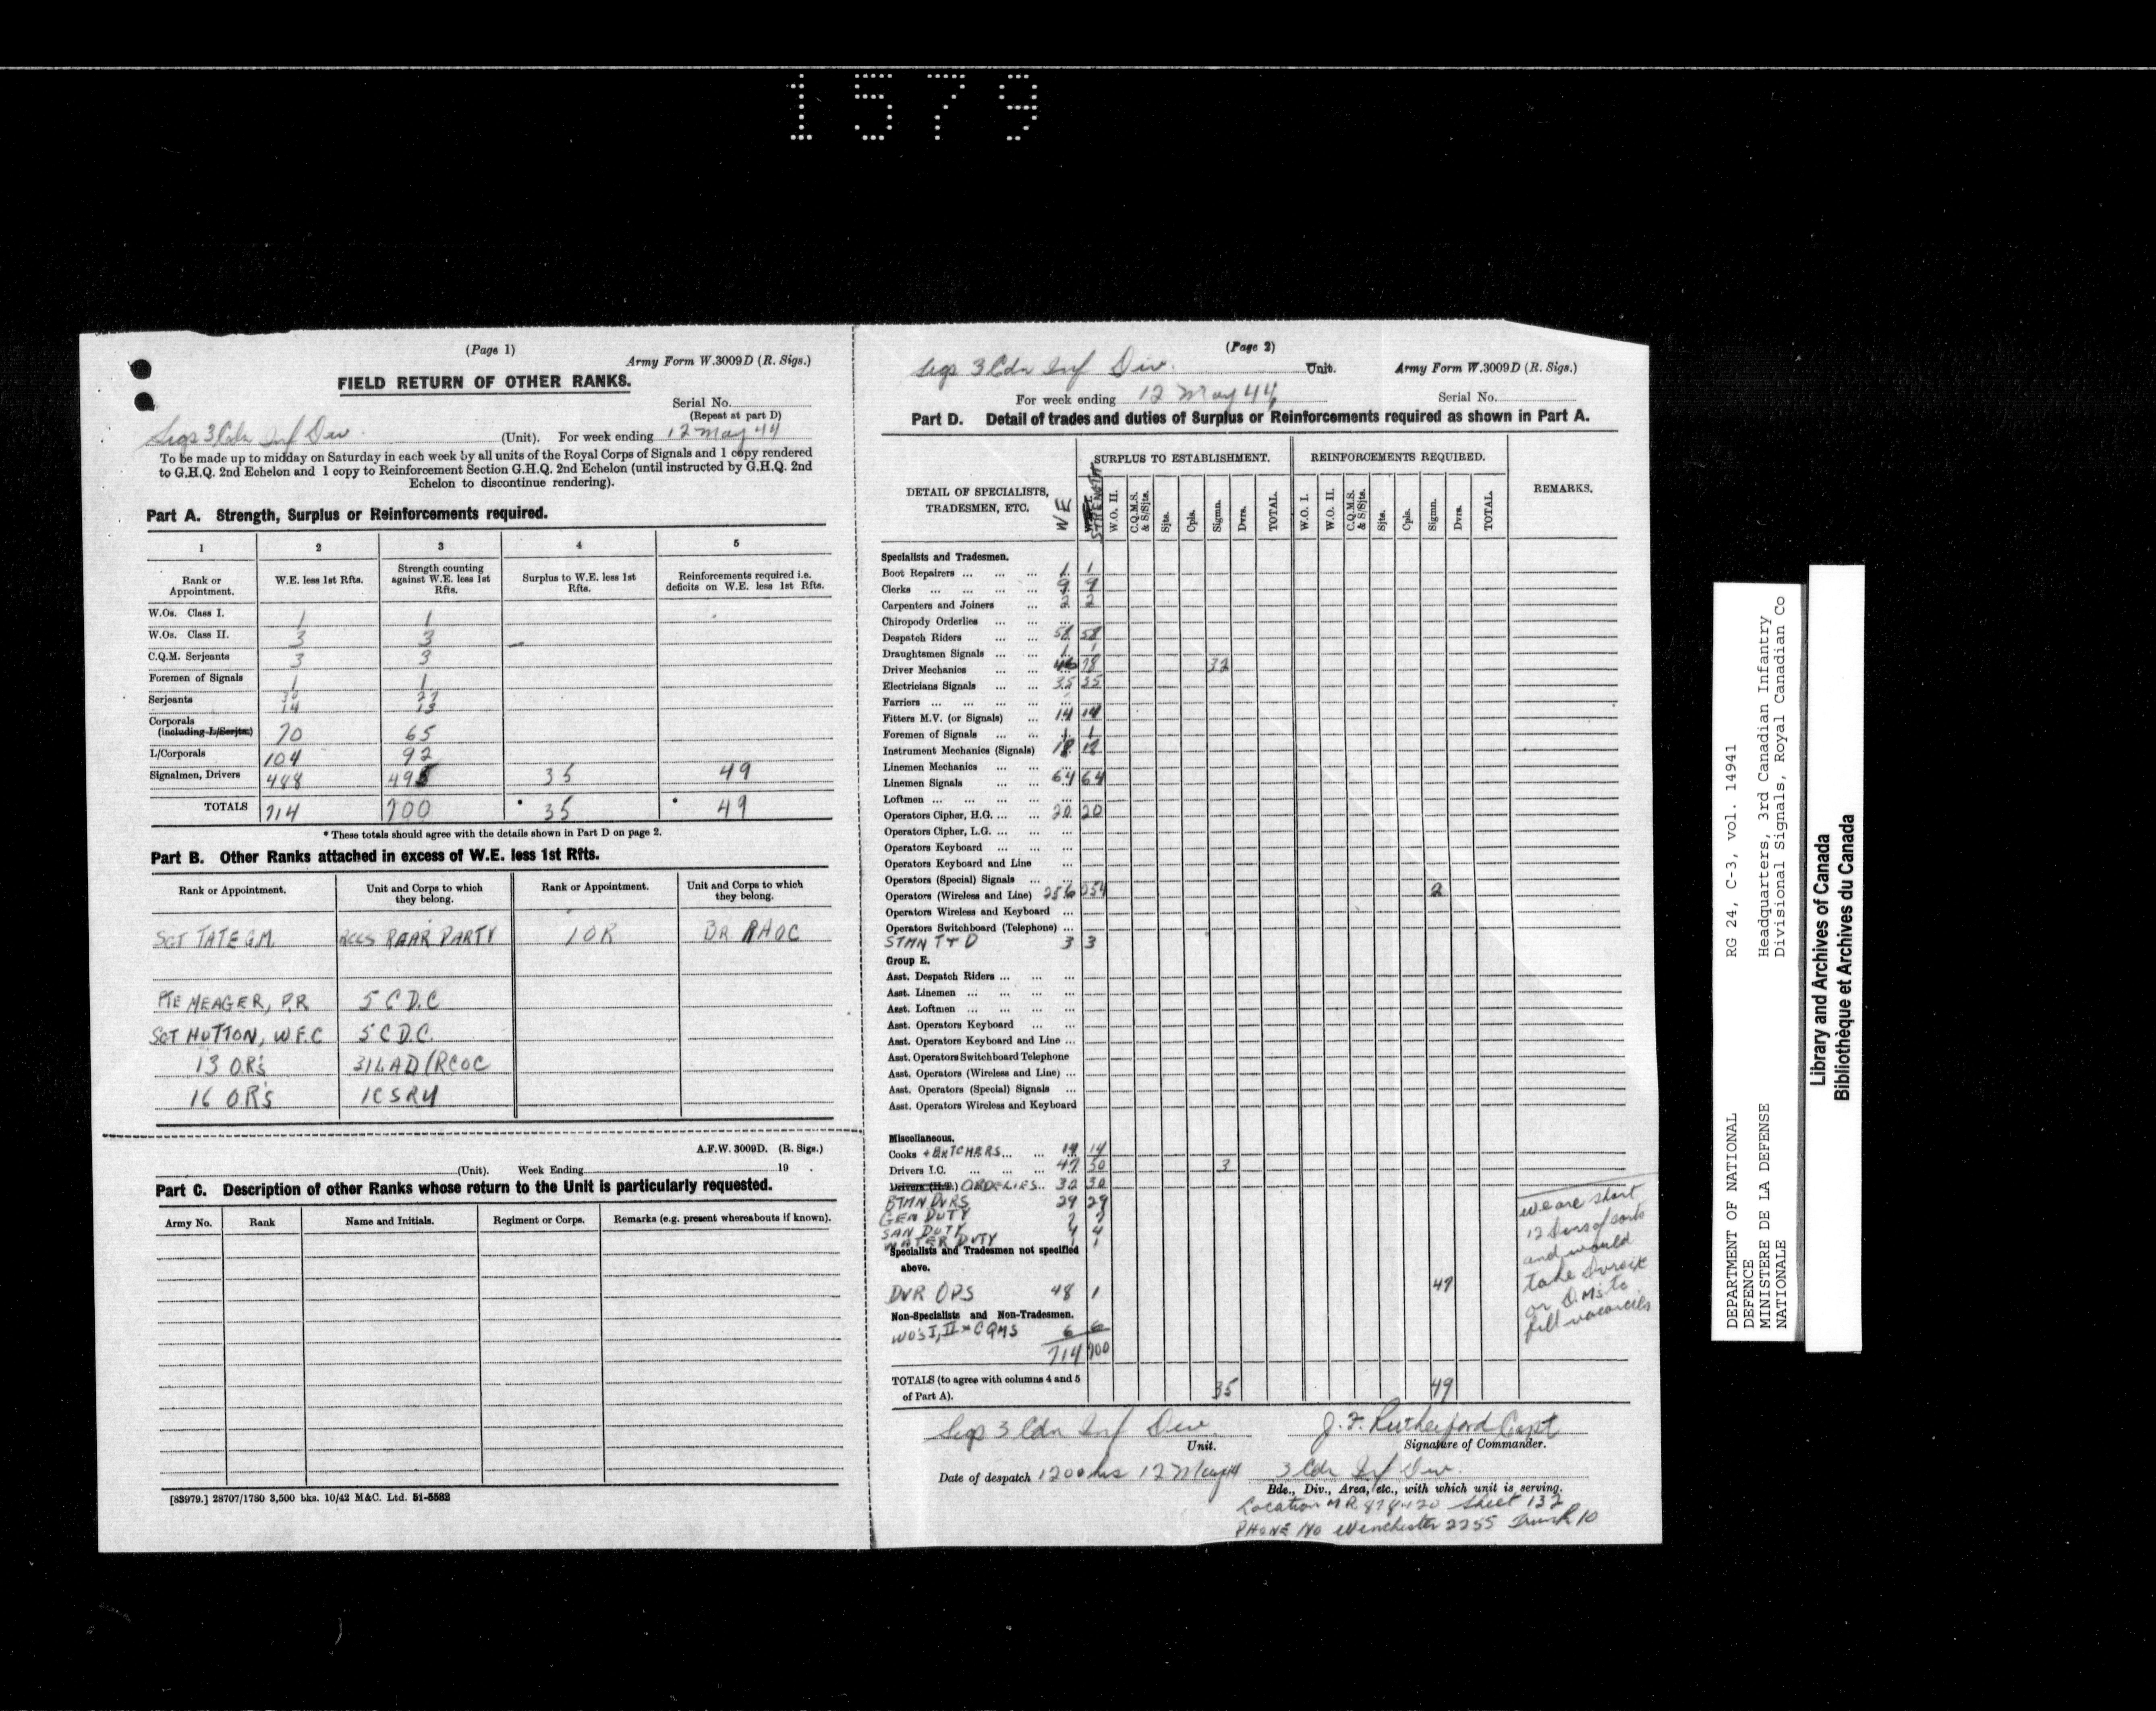 1579
(Page 1)
Army Form W.3009D (R. Sigs.)
FIELD RETURN OF OTHER RANKS.
Serial No.
(Repeat at part D)
Sigs 3 Cdn Inf Div (Unit). For week ending 12 May 44
To be made up to midday on Saturday in each week by all units of the Royal Corps of Signals and 1 copy rendered
to G.H.Q. 2nd Echelon and 1 copy to Reinforcement Section G.H.Q. 2nd Echelon (until instructed by G.H.Q. 2nd
Echelon to discontinue rendering).
Part A. Strength, Surplus or Reinforcements required.
1 2 3 4 5
Rank or Appointment. W.E. less 1st Rfts. Strength counting against W.E. less 1st Rfts. Surplus to W.E. less 1st Rfts. Reinforcements required i.e. deficits on W.E. less 1st Rfts.
W.Os. Class I. 1 1
W.Os. Class II. 3 3
C.Q.M. Serjeants 3 3
Foremen of Signals 1 1
Serjeants 30 27
14 13
Corporals
(including L/Serjts.) 70 65
L/Corporals 104 92
Signalmen, Drivers 488 495 35 49
TOTALS 714 700 * 35 * 49
* These totals should agree with the details shown in Part D on page 2.
Part B. Other Ranks attached in excess of W.E. less 1st Rfts.
Rank or Appointment. Unit and Corps to which they belong. Rank or Appointment. Unit and Corps to which they belong.
SGT TATE G.M. RCCS REAR PARTY 1 OR BR RHQC
PTE MEAGER, P.R 5 C.D.C
SGT HUTTON, W.F.C 5 C D.C.
13 O.R's 31 LAD/RCOC
16 O.R's 1CSRU
A.F.W. 3009D. (R. Sigs.)
(Unit). Week Ending 19 .
Part C. Description of other Ranks whose return to the Unit is particularly requested.
Army No. Rank Name and Initials. Regiment or Corps. Remarks (e.g. present whereabouts if known).
[83979.] 28707/1780 3,500 bks. 10/42 M&C. Ltd. 51-5582
(Page 2)
Sigs 3 Cdn Inf Div. Unit. Army Form W.3009D (R. Sigs.)
For week ending 12 May 44 Serial No.
Part D. Detail of trades and duties of Surplus or Reinforcements required as shown in Part A.
DETAIL OF SPECIALISTS, TRADESMEN, ETC. W E STRENGTH SURPLUS TO ESTABLISHMENT. REINFORCEMENTS REQUIRED. REMARKS.
W.O. II. C.Q.M.S. & S/Sjts. Sjts. Cpls. Sigmn. Dvrs. TOTAL. W.O. I. W.O. II. C.Q.M.S. & S/Sjts. Sjts. Cpls. Sigmn. Dvrs. TOTAL.
Specialists and Tradesmen.
Boot Repairers ... ... ... 1 1
Clerks ... ... ... ... 9 9
Carpenters and Joiners ... 2 2
Chiropody Orderlies ... ...
Despatch Riders ... ... 58 58
Draughtsmen Signals ... ... 1 1
Driver Mechanics ... ... 46 78 32
Electricians Signals ... ... 35 35
Farriers ... ... ... ... ...
Fitters M.V. (or Signals) ... 14 14
Foremen of Signals ... ... 1 1
Instrument Mechanics (Signals) 12 12
Linemen Mechanics ... ... ...
Linemen Signals ... ... 64 64
Loftmen ... ... ... ... ...
Operators Cipher, H.G. ... ... 20 20
Operators Cipher, L.G. ... ...
Operators Keyboard ... ... ...
Operators Keyboard and Line ...
Operators (Special) Signals ... ...
Operators (Wireless and Line) 256 254 2
Operators Wireless and Keyboard ...
Operators Switchboard (Telephone) ...
STMN T + D 3 3
Group E.
Asst. Despatch Riders ... ... ...
Asst. Linemen ... ... ...
Asst. Loftmen ... ... ...
Asst. Operators Keyboard ... ...
Asst. Operators Keyboard and Line ...
Asst. Operators Switchboard Telephone
Asst. Operators (Wireless and Line) ...
Asst. Operators (Special) Signals ...
Asst. Operators Wireless and Keyboard
Miscellaneous.
Cooks + BUTCHERS ... ... 14 14
Drivers I.C. ... ... ... 47 50 3
Drivers (H.T.) ORDERLIES.. 30 30
BTMN DVRS 29 29
GEN DUTY 7 7
SAN DUTY 4 4
WATER DUTY 1 1
Specialists and Tradesmen not specified
above.
DVR OPS 48 1 47
Non-Specialists and Non-Tradesmen.
WO'S I, II + CQMS 6 6
714 700
we are short
12 Dvrs of sorts
and would
take Dvrs i/c
or D.Ms to
fill vacancies
TOTALS (to agree with columns 4 and 5
of Part A). 35 49
Sigs 3 Cdn Inf Div. J. F. Rutherford Capt
Unit. Signature of Commander.
Date of despatch 1200 hrs 12 May 44 3 Cdn Inf Div.
Bde., Div., Area, etc., with which unit is serving.
Location MR 878420 Sheet 132
PHONE No Winchester 2255 Trunk 10
DEPARTMENT OF NATIONAL
DEFENCE
MINISTERE DE LA DEFENSE
NATIONALE
RG 24, C-3, vol. 14941
Headquarters, 3rd Canadian Infantry
Divisional Signals, Royal Canadian Co
Library and Archives of Canada
Bibliothèque et Archives du Canada